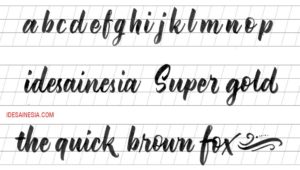 a b c d e f g h i j k l m n o p
idesainesia Super gold
IDESAINESIA.COM
the quick brown fox